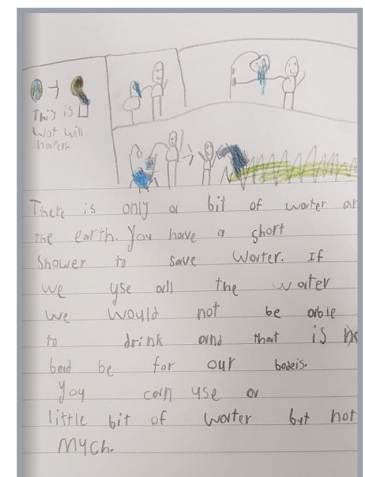 This is
wot will
hapen
There is only a bit of water on
the earth. You have a short
shower to save water. If
we yse all the water
we would not be able
to drink and that is
bad be for our bodeis.
You can yse a
little bit of water but not
mych.